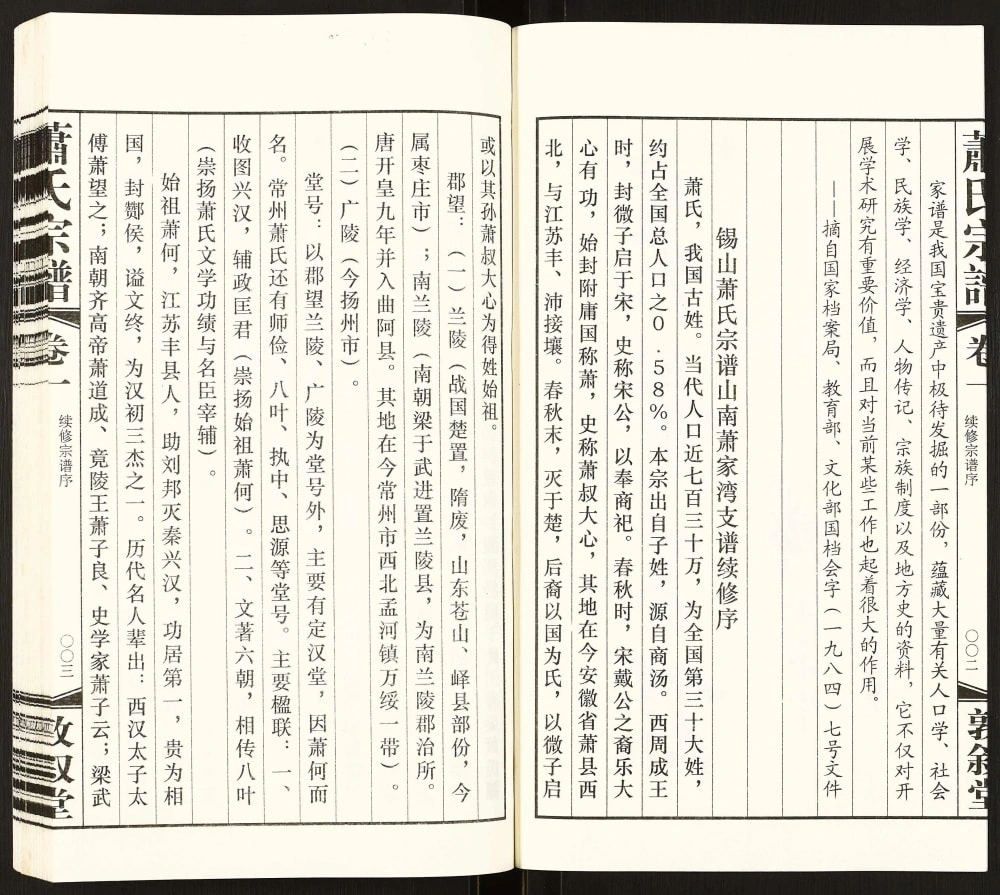 蕭氏宗譜
卷一
续修宗谱序
〇〇二
敦叙堂
家谱是我国宝贵遗产中极待发掘的一部份，蕴藏大量有关人口学、社会
学、民族学、经济学、人物传记、宗族制度以及地方史的资料，它不仅对开
展学术研究有重要价值，而且对当前某些工作也起着很大的作用。
——摘自国家档案局、教育部、文化部国档会字（一九八四）七号文件
锡山萧氏宗谱山南萧家湾支谱续修序
萧氏，我国古姓。当代人口近七百三十万，为全国第三十大姓，
约占全国总人口之0.58%。本宗出自子姓，源自商汤。西周成王
时，封微子启于宋，史称宋公，以奉商祀。春秋时，宋戴公之裔乐大
心有功，始封附庸国称萧，史称萧叔大心，其地在今安徽省萧县西
北，与江苏丰、沛接壤。春秋末，灭于楚，后裔以国为氏，以微子启
或以其孙萧叔大心为得姓始祖。
郡望：（一）兰陵（战国楚置，隋废，山东苍山、峄县部份，今
属枣庄市）；南兰陵（南朝梁于武进置兰陵县，为南兰陵郡治所。
唐开皇九年并入曲阿县。其地在今常州市西北孟河镇万绥一带）。
（二）广陵（今扬州市）。
堂号：以郡望兰陵、广陵为堂号外，主要有定汉堂，因萧何而
名。常州萧氏还有师俭、八叶、执中、思源等堂号。主要楹联：一、
收图兴汉，辅政匡君（崇扬始祖萧何）。二、文著六朝，相传八叶
（崇扬萧氏文学功绩与名臣宰辅）。
始祖萧何，江苏丰县人，助刘邦灭秦兴汉，功居第一，贵为相
国，封酇侯，谥文终，为汉初三杰之一。历代名人辈出：西汉太子太
傅萧望之；南朝齐高帝萧道成、竟陵王萧子良、史学家萧子云；梁武
蕭氏宗譜
卷一
续修宗谱序
〇〇三
敦叙堂